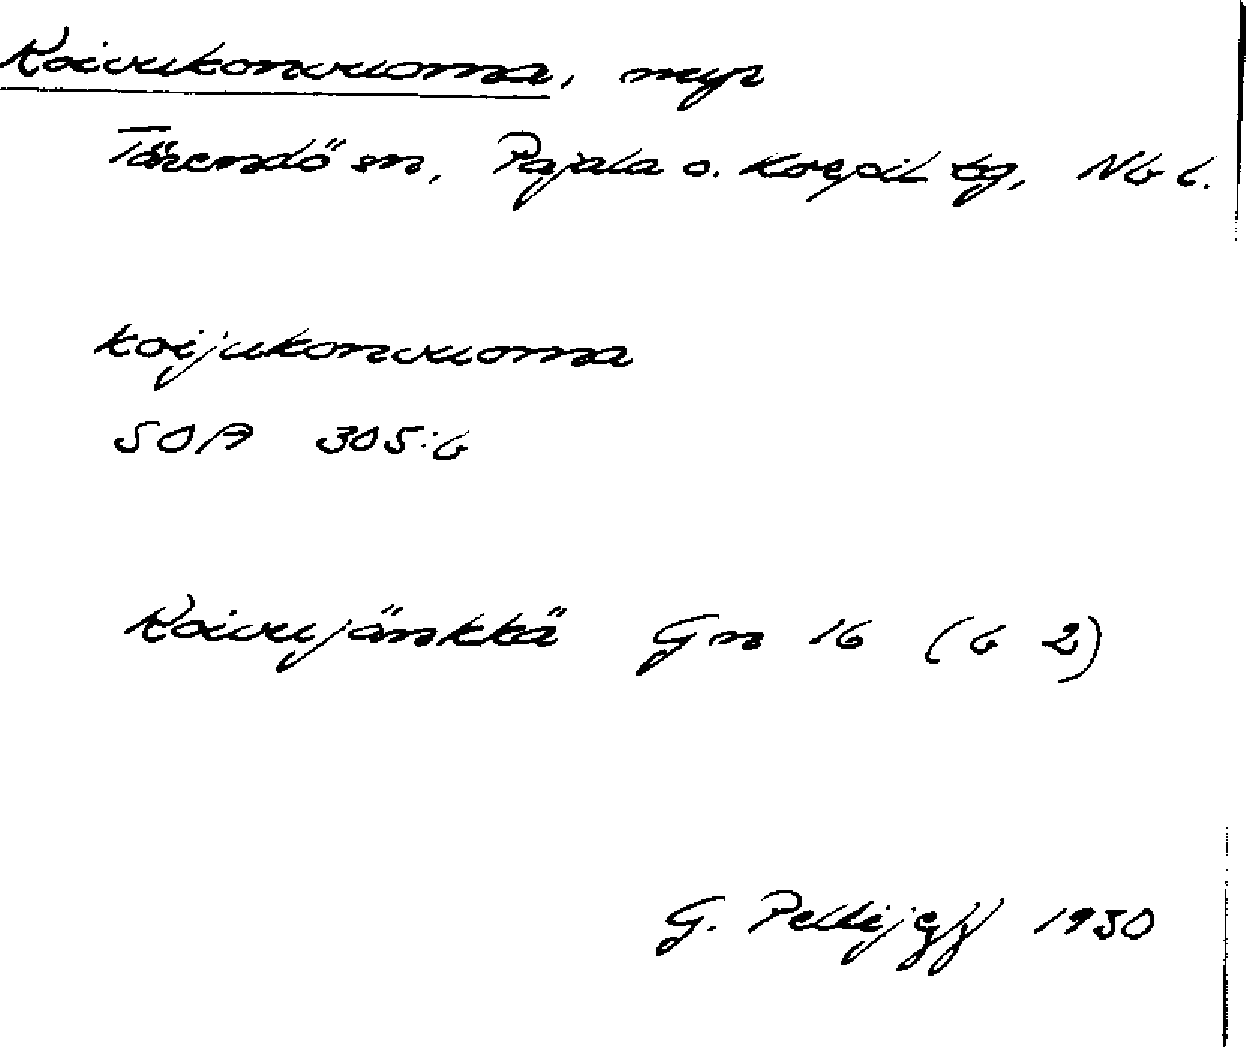 Koivukonvuoma, myr
Tärendö sn, Pajala o. Korpil tg, Nb l.
koijukonvuoma
SOA 305:6
Koivujänkkä Gn 16 (b 2)
G. Pellijeff 1950